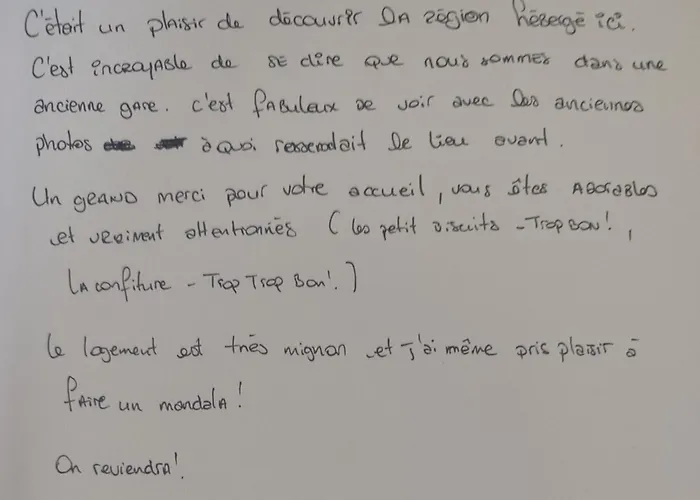 C'était un plaisir de découvrir la région hébergé ici.
C'est incroyable de se dire que nous sommes dans une
ancienne gare. C'est fabuleux de voir avec les anciennes
photos à quoi ressemblait le lieu avant.
Un grand merci pour votre accueil, vous êtes ADORABLES
et vraiment attentionnés (les petit biscuits - Trop Bon!,
La confiture - Trop Trop Bon!)
Le logement est très mignon et j'ai même pris plaisir à
faire un mandala!
On reviendra!